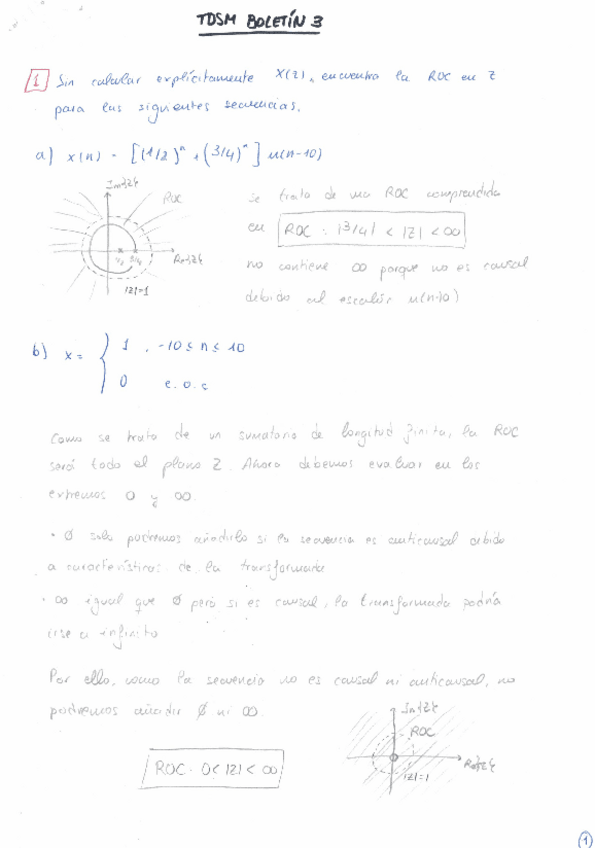 TDSM BOLETÍN 3
1 Sin calcular explícitamente X(z), encuentra la ROC en Z
para las siguientes secuencias.
a) x(n) = [(1/2)^n + (3/4)^n] u(n-10)
Im{z}
ROC
1/2 3/4 Re{z}
|z|=1
se trata de una ROC comprendida
en ROC : |3/4| < |z| < ∞
no contiene ∞ porque no es causal
debido al escalón u(n-10)
b) x = { 1 , -10 ≤ n ≤ 10
0 e.o.c
Como se trata de un sumatorio de longitud finita, la ROC
será todo el plano Z. Ahora debemos evaluar en los
extremos 0 y ∞.
· Ø solo podremos añadirlo si la secuencia es anticausal debido
a características de la transformada
· ∞ igual que Ø pero si es causal, la transformada podría
irse a infinito
Por ello, como la secuencia no es causal ni anticausal, no
podremos añadir Ø ni ∞.
ROC · 0 < |z| < ∞
Im{z}
ROC
Re{z}
|z|=1
1